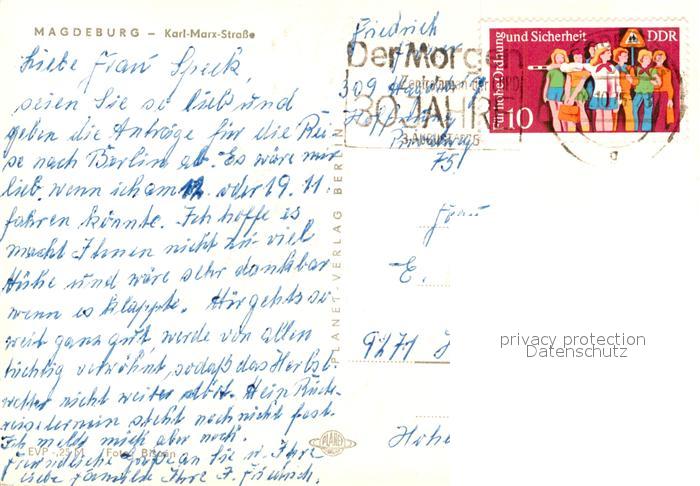 MAGDEBURG – Karl-Marx-Straße
Liebe Frau Speck,
seien Sie so lieb und
geben die Anträge für die Rei-
se nach Berlin ab. Es wäre mir
lieb, wenn ich am 12. oder 19. 11.
fahren könnte. Ich hoffe es
macht Ihnen nicht zu viel
Mühe und wäre sehr dankbar
wenn es klappte. Mir gehts so-
weit ganz gut, werde von allen
tüchtig verwöhnt, sodaß das Herbst-
wetter nicht weiter stört. Mein Rück-
reisetermin steht noch nicht fest.
Ich melde mich aber noch.
Freundliche Grüße an Sie u. Ihre
liebe Familie Ihre F. Friedrich.
EVP -,25 M Foto:
PLANET-VERLAG BERLIN
PLANET
Friedrich
309
751
Der Morgen
Zentralorgan der LDPD
30 JAHRE
3. AUGUST 1975
Für hohe Ordnung und Sicherheit
DDR
10
Frau
E.
9271
Hohe
privacy protection
Datenschutz